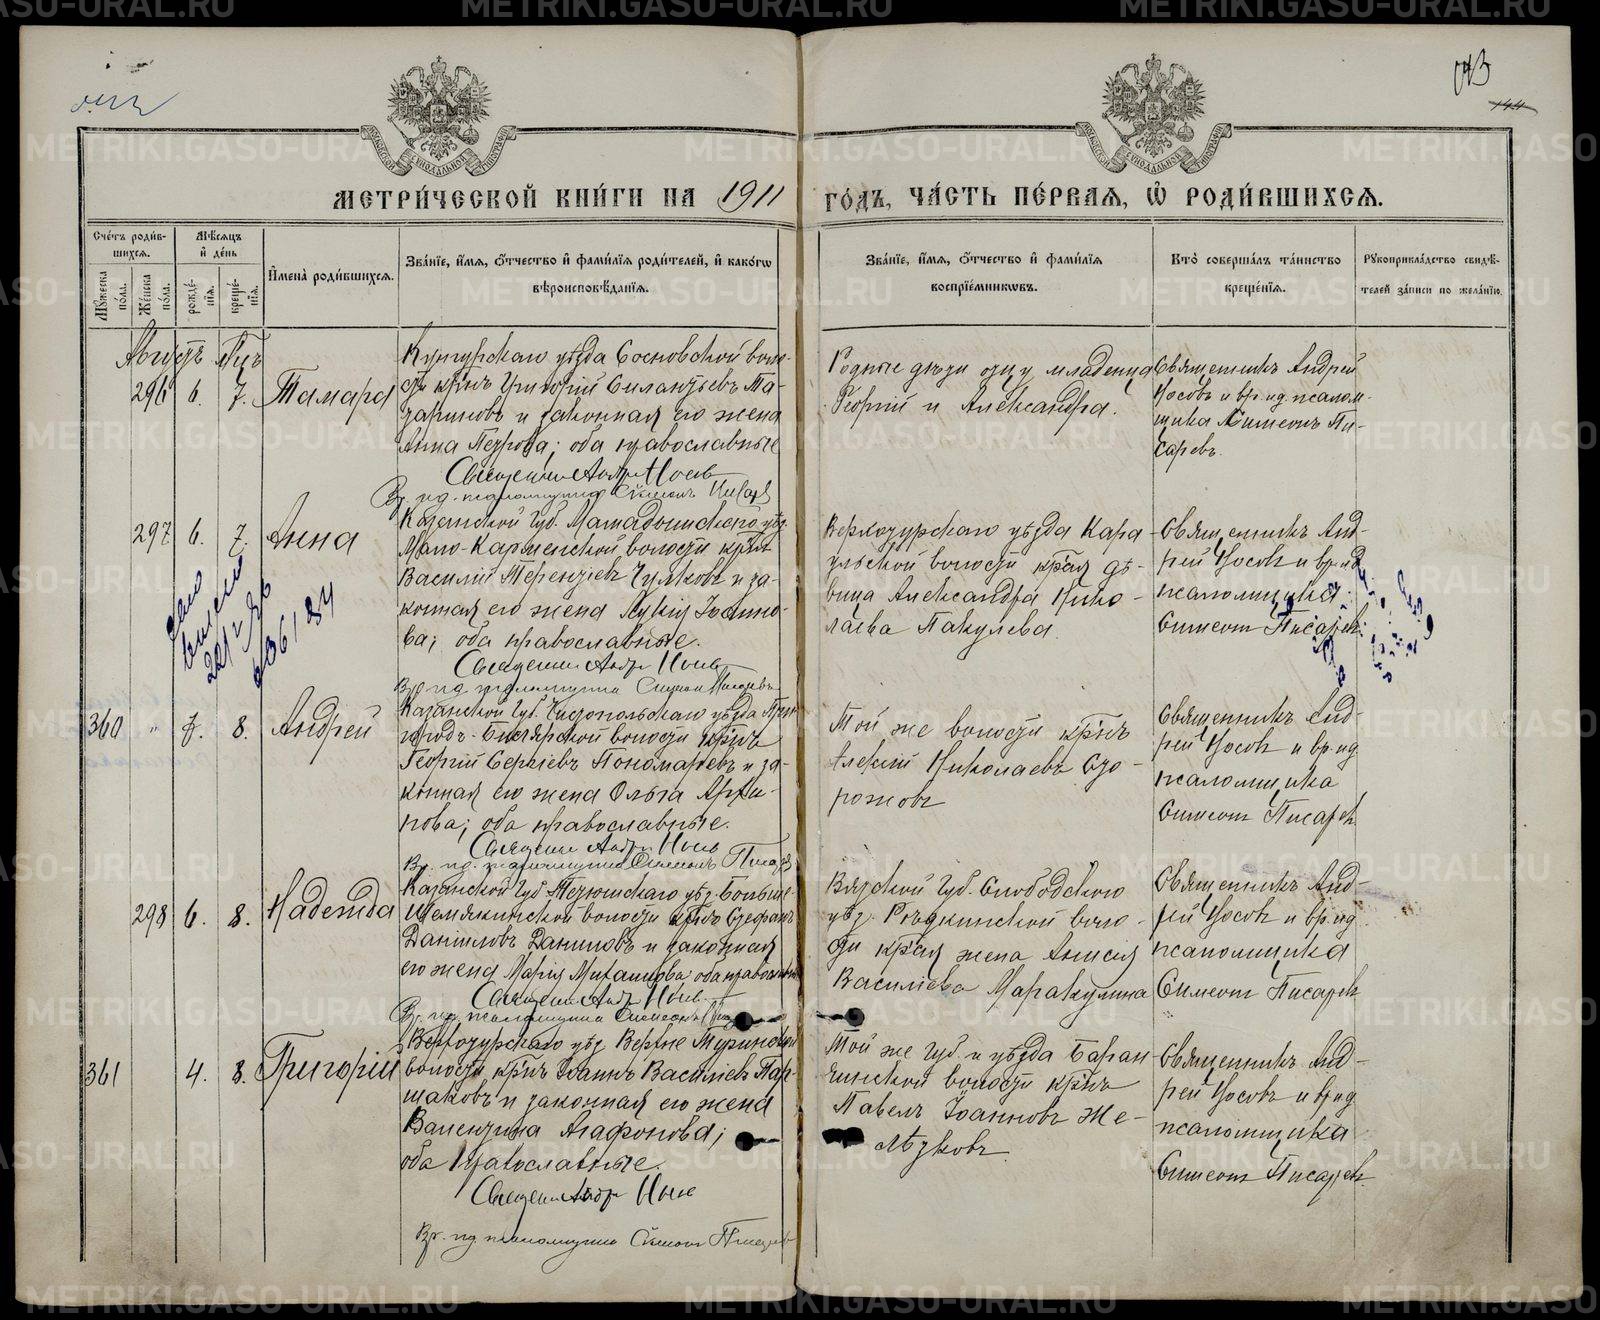 МЕТРИ́ЧЕСКОЙ КНИ́ГИ НА 1911
ГО́ДЪ, ЧА́СТЬ ПЕ́РВАѦ, Ѡ҆ РОДИ́ВШИХСѦ.
143
144
Сче́тъ роди́в-
шихсѧ.
Мꙋ́жеска по́ла.
Же́нска по́ла.
Мѣ́сѧцъ и҆ де́нь
рожде́-нїѧ.
креще́-нїѧ.
И҆мена̀ роди́вшихсѧ.
Зва́нїе, и҆́мѧ, ѻ҆́тчество и҆ фами́лїѧ роди́телей, и҆ како́гѡ
вѣроисповѣ́данїѧ.
Зва́нїе, и҆́мѧ, ѻ҆́тчество и҆ фами́лїѧ
воспрїе́мникѡвъ.
Кто̀ соверша́лъ та́инство
креще́нїѧ.
Рꙋкоприкла́дство свидѣ́-
телей за́писи по жела́нїю.
Августъ
296 6. 7. Тамара
Кунгурскаго уѣзда Сосновской воло-
сти кр-нъ Григорій Силантьевъ Та-
зариновъ и законная его жена
Анна Петрова; оба православные
Священник Андр Носов
Вр. ид. псаломщика Симеонъ Писарев
Родные дѣти отцу младенца
Георгій и Александра.
Священникъ Андрей
Носовъ и вр. ид. псалом-
щика Симеонъ Пи-
саревъ.
297 6. 7. Анна
Казанской губ. Мамадышскаго уѣз.
Мало-Карменской волости кр-нъ
Василій Терентіевъ Чулковъ и за-
конная его жена Лукія Іоанно-
ва; оба православные.
Священник Андр Носов
Вр. ид. псаломщика Симеон Писаревъ
Верхотурскаго уѣзда Кара-
ульской волости кр-ая дѣ-
вица Александра Нико-
лаева Пакулева
Священникъ Анд-
рей Носовъ и вр. ид
псаломщика
Симеонъ Писаревъ.
360 " 7. 8. Андрей
Казанской губ. Чистопольскаго уѣзда При-
городъ-Билярской волости кр-нъ
Георгій Сергіевъ Пономаревъ и за-
конная его жена Ольга Архи-
пова; оба православные.
Священник Андр Носов
Вр. ид. псаломщика Симеонъ Писарев
Той же волости кр-нъ
Алексій Николаевъ Сто-
рожовъ
Священникъ Анд-
рей Носовъ и вр. ид
псаломщика
Симеонъ Писаревъ
298 6. 8. Надежда
Казанской губ. Тетюшскаго уѣз. Больше-
Шемякинской волости кр-нъ Стефанъ
Даніиловъ Даниловъ и законная
его жена Марія Михаилова; оба православные
Священник Андр Носов
Вр. ид. псаломщика Симеонъ
Вятской губ. Слободского
уѣз. волос-
ти кр-ая жена Анисія
Василіева Маракулина
Священникъ Анд-
рей Носовъ и вр. ид.
псаломщика
Симеонъ Писаревъ
361 4. 8. Григорій
Верхотурскаго уѣз Верхне Туринской
волости кр-нъ Іоаннъ Василіевъ Пар-
шаковъ и законная его жена
Валентина Агафонова;
оба православные.
Священник Андр Носов
Вр. ид псаломщика Симеон Писарев
Той же губ. и уѣзда Баран-
чинской волости кр-нъ
Павелъ Іоанновъ Же-
лѣзковъ
Священникъ Анд-
рей Носовъ и вр. ид
псаломщика
Симеонъ Писаревъ.
METRIKI.GASO-URAL.RU